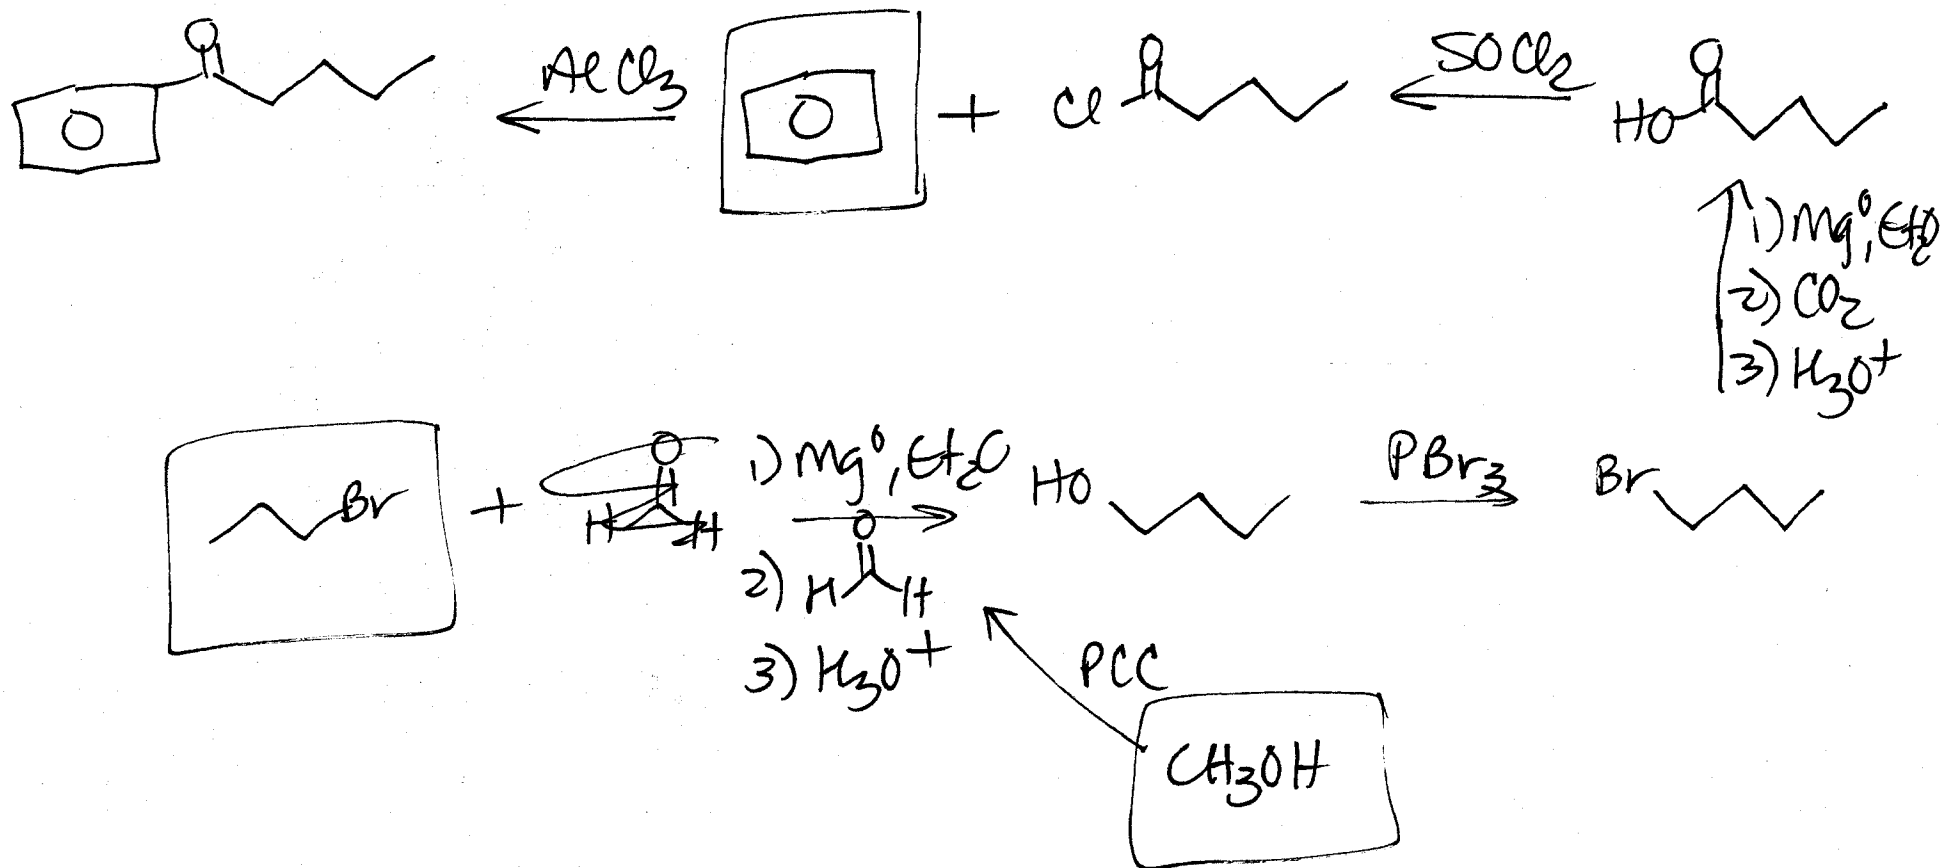 O
AlCl3
+
Cl
O
SOCl2
HO
O
1) Mg°, Et2O
2) CO2
3) H3O+
Br
+
O
H
H
1) Mg°, Et2O
2) H
O
H
3) H3O+
HO
PBr3
Br
PCC
CH3OH